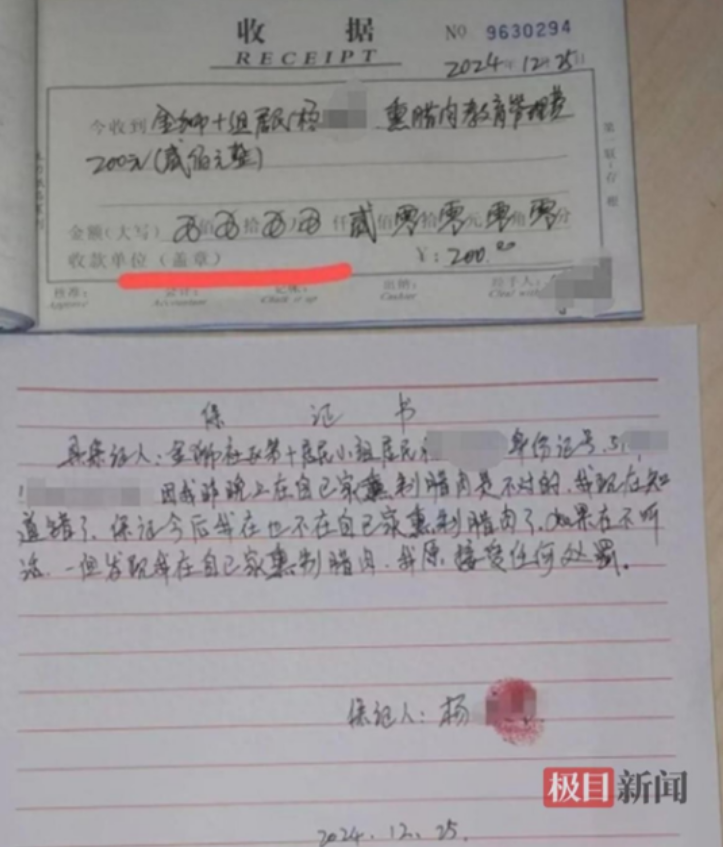 收据
NO 9630294
RECEIPT
2024年12月25日
今收到 金狮十组居民杨 熏腊肉教育管理费
200元(贰佰元整)
金额(大写) 佰 拾 万 仟 贰佰零拾零元零角零分
收款单位(盖章) ¥:200.00
核准: 会计: 记账: 出纳: 经手人:
Approve Accountant Check it up Cashier
第一联:存根
保 证 书
具保证人:金狮社区第十居民小组居民 身份证号:51
因我昨晚上在自己家熏制腊肉是不对的,我现在知
道错了,保证今后我在也不在自己家熏制腊肉了,如果在不听
话,一但发现我在自己家熏制腊肉,我原接受任何处罚。
保证人:杨
极目新闻
2024.12.25.